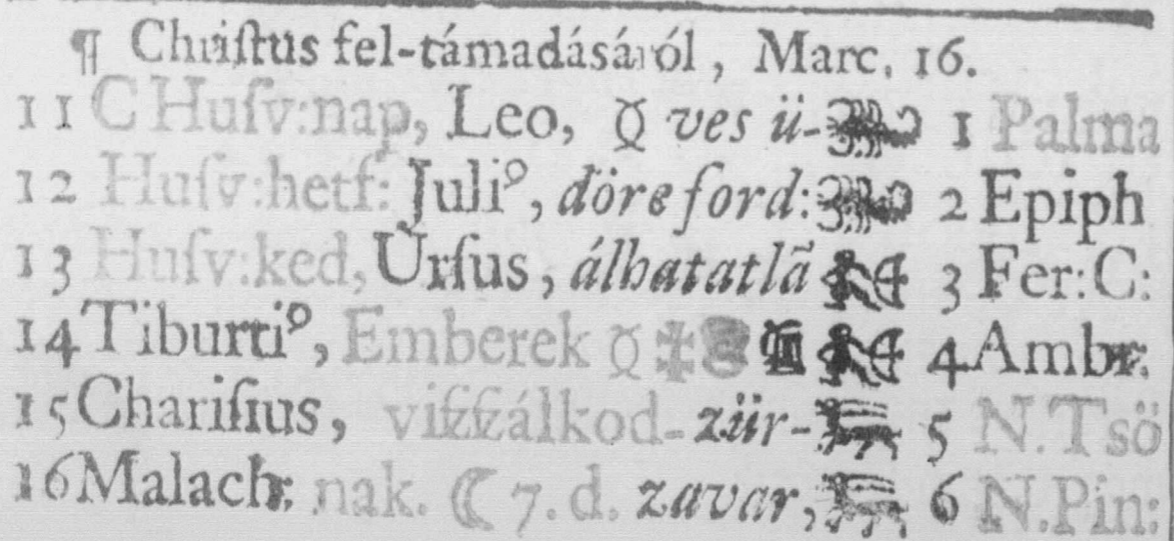 ¶ Chriſtus fel-támadásáról, Marc. 16.
11 C Huſv:nap, Leo, ☿ ves ü- 1 Palma
12 Huſv:hetf: Juliꝰ, döre ford: 2 Epiph
13 Huſv:ked, Urſus, álhatatlã 3 Fer:C:
14 Tiburtiꝰ, Emberek ☿ 4 Ambr:
15 Chariſius, viſzſzálkod- zür- 5 N.Tsö
16 Malach: nak. ☾ 7. d. zavar, 6 N.Pin: